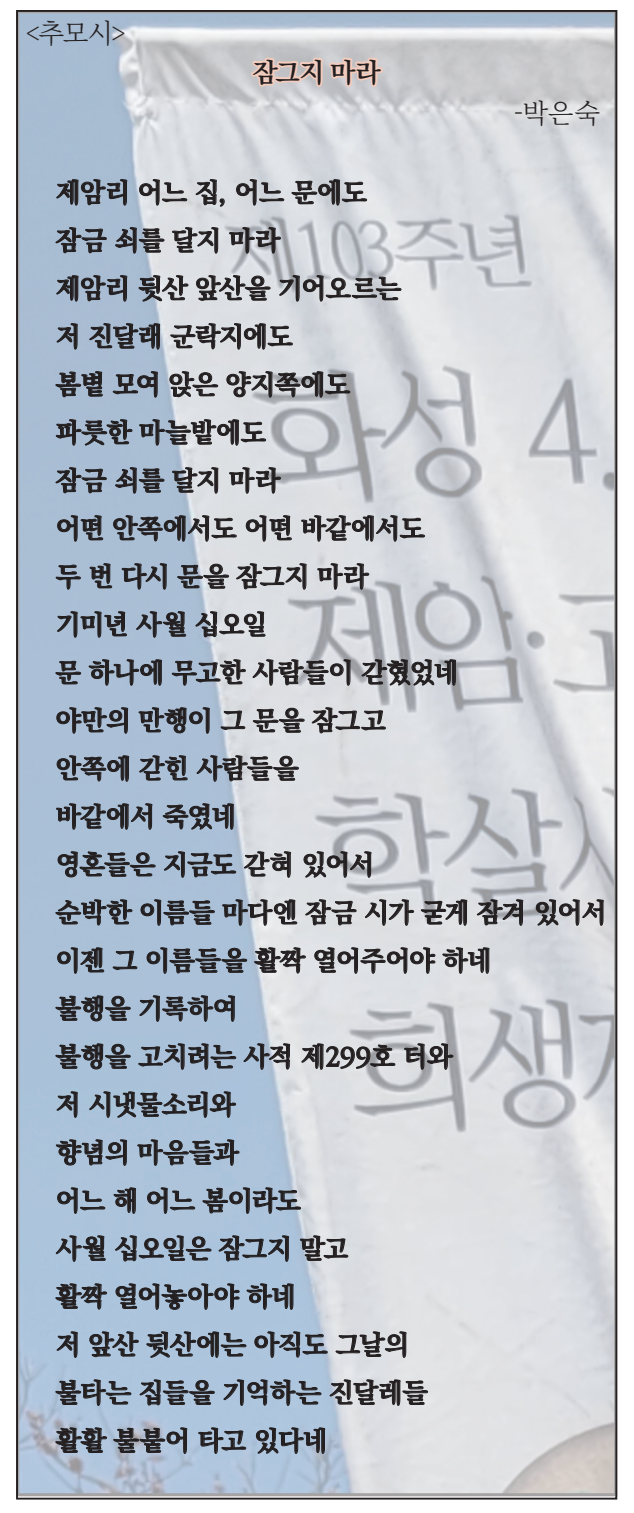 <추모시>
잠그지 마라
-박은숙
제암리 어느 집, 어느 문에도
잠금 쇠를 달지 마라
제암리 뒷산 앞산을 기어오르는
저 진달래 군락지에도
봄볕 모여 앉은 양지쪽에도
파릇한 마늘밭에도
잠금 쇠를 달지 마라
어떤 안쪽에서도 어떤 바같에서도
두 번 다시 문을 잠그지 마라
기미년 사월 십오일
문 하나에 무고한 사람들이 갇혔었네
야만의 만행이 그 문을 잠그고
안쪽에 갇힌 사람들을
바같에서 죽였네
영혼들은 지금도 갇혀 있어서
순박한 이름들 마다엔 잠금 시가 굳게 잠겨 있어서
이젠 그 이름들을 활짝 열어주어야 하네
불행을 기록하여
불행을 고치려는 사적 제299호 터와
저 시냇물소리와
향념의 마음들과
어느 해 어느 봄이라도
사월 십오일은 잠그지 말고
활짝 열어놓아야 하네
저 앞산 뒷산에는 아직도 그날의
불타는 집들을 기억하는 진달레들
활활 불붙어 타고 있다네
제103주년
화성 4.
제암·고
학살사
희생자